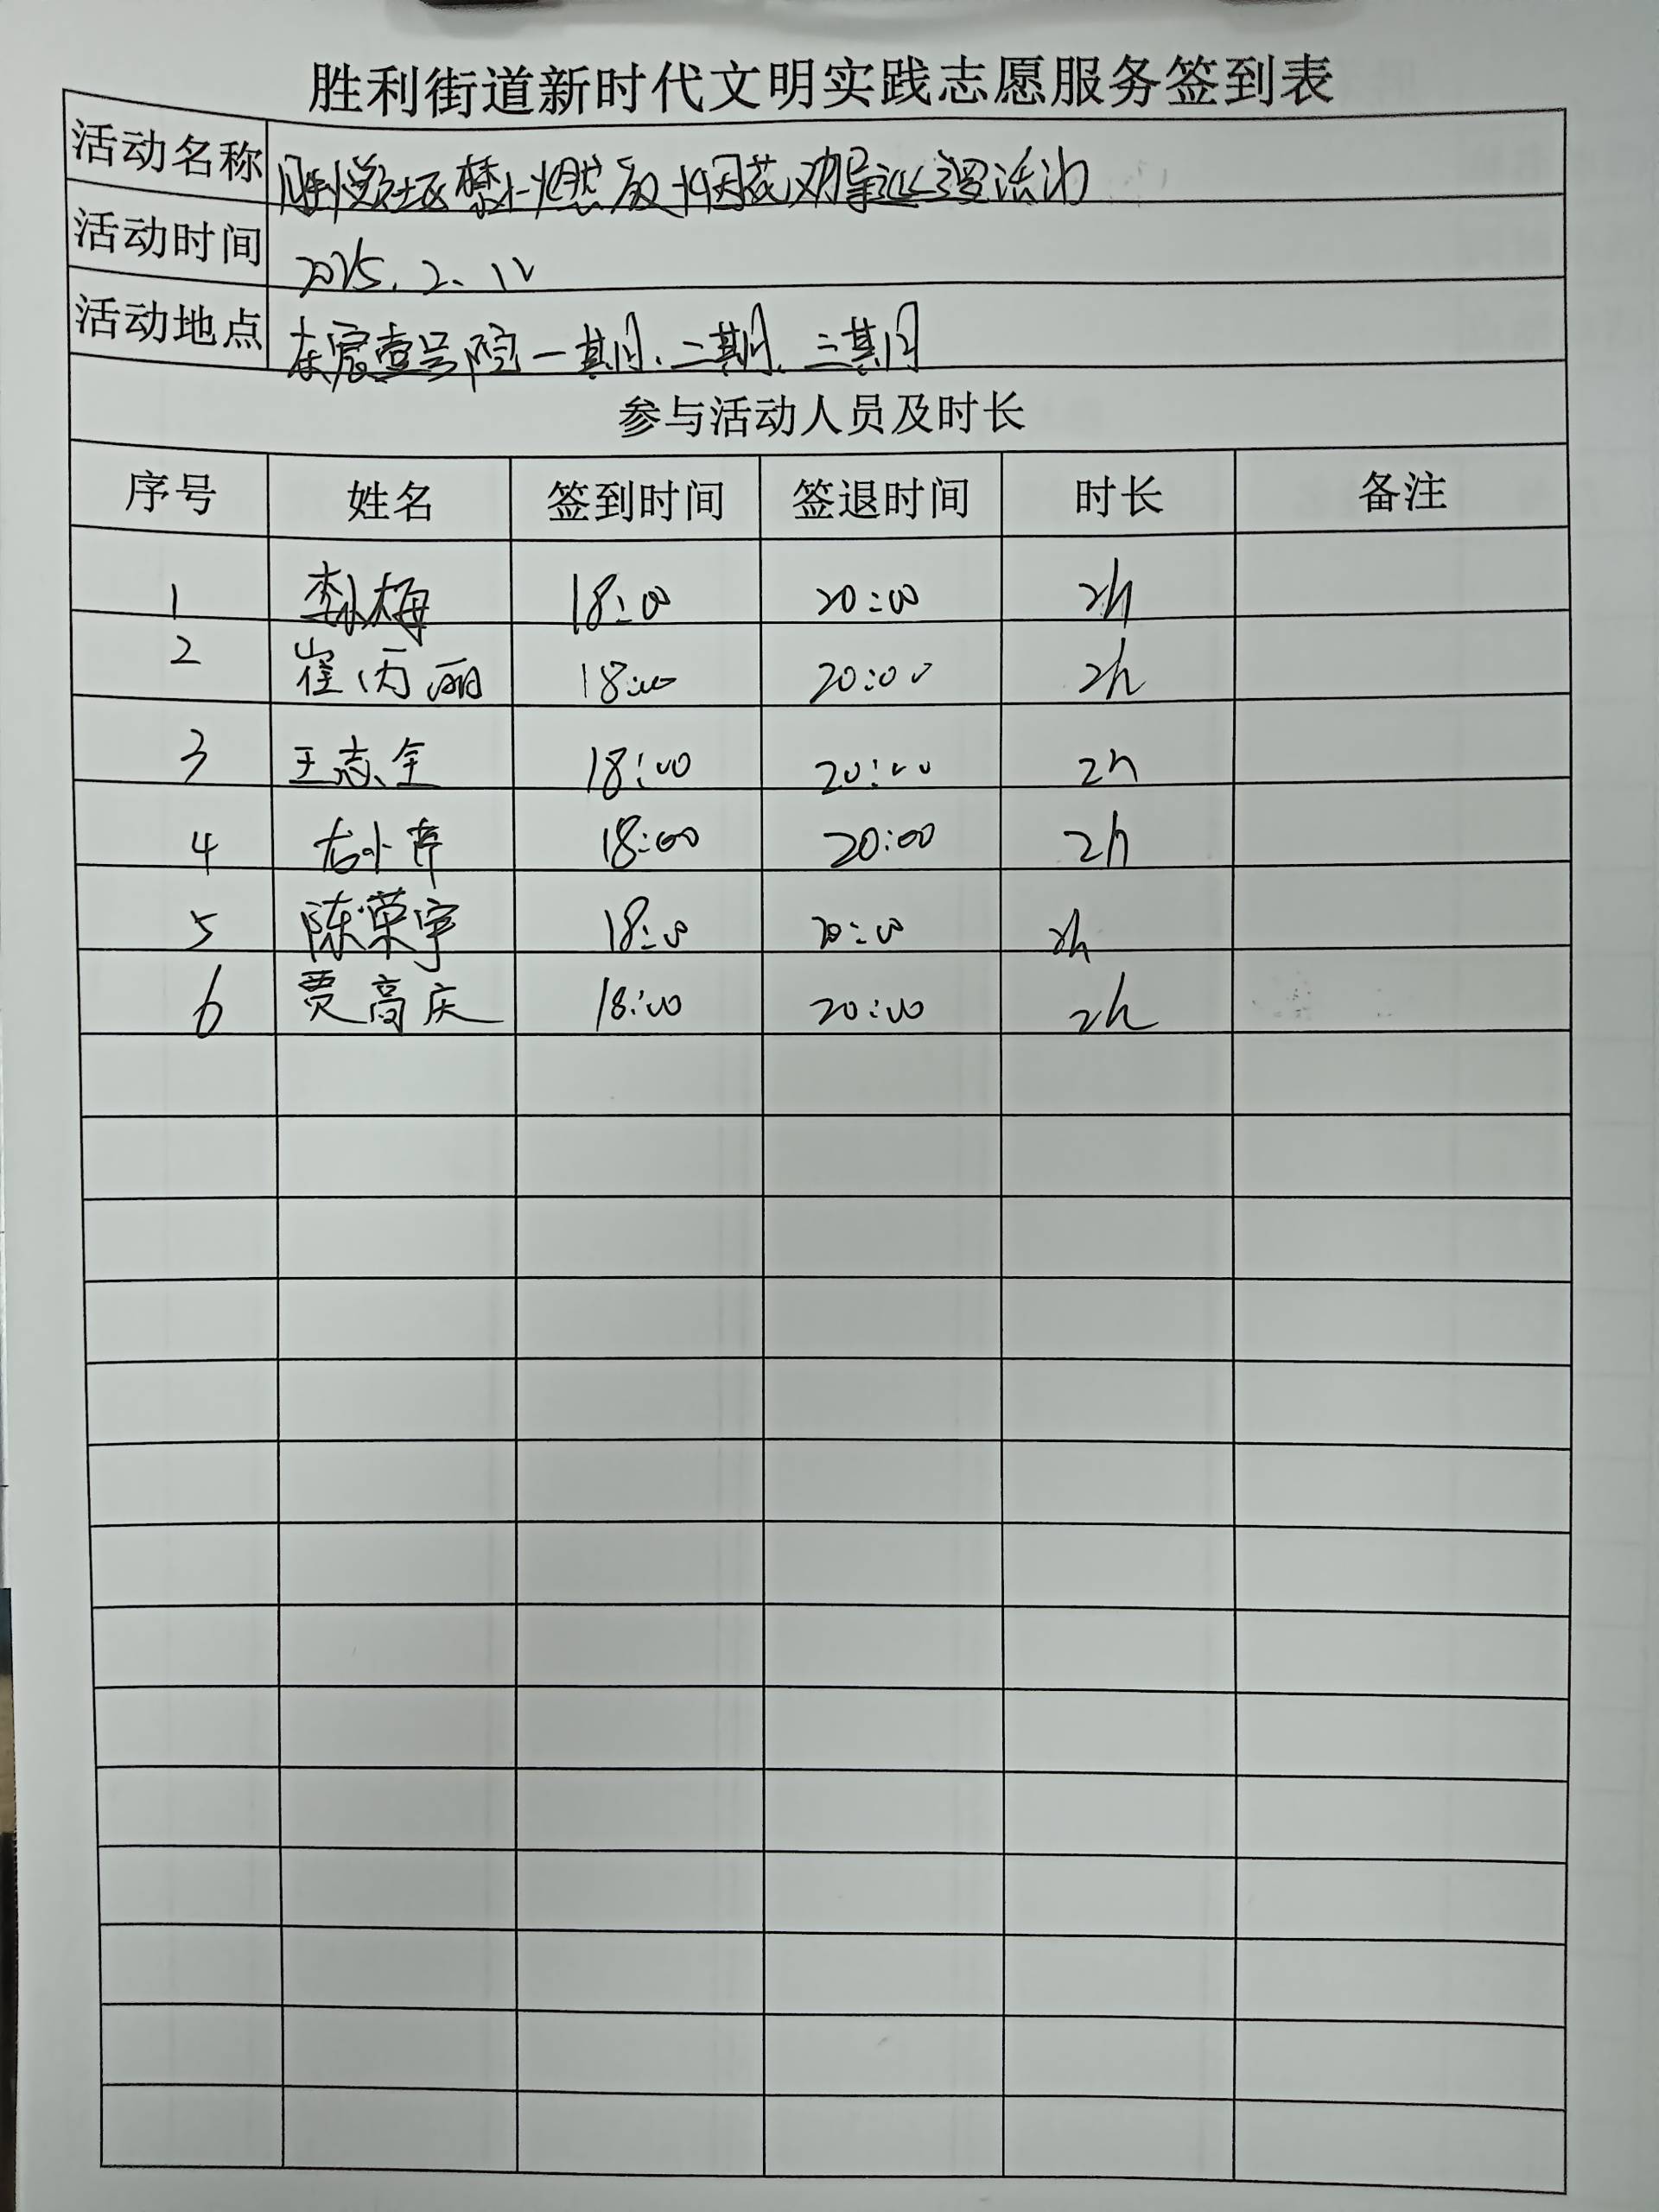 胜利街道新时代文明实践志愿服务签到表
活动名称 胜悦社区禁止燃放烟花劝导巡逻活动
活动时间 2025.2.12
活动地点 东宸壹号院一期、二期、三期
参与活动人员及时长
序号 姓名 签到时间 签退时间 时长 备注
1 李小梅 18:00 20:00 2h
2 崔丙丽 18:00 20:00 2h
3 王志全 18:00 20:00 2h
4 18:00 20:00 2h
5 陈荣宇 18:00 20:00 2h
6 贾高庆 18:00 20:00 2h